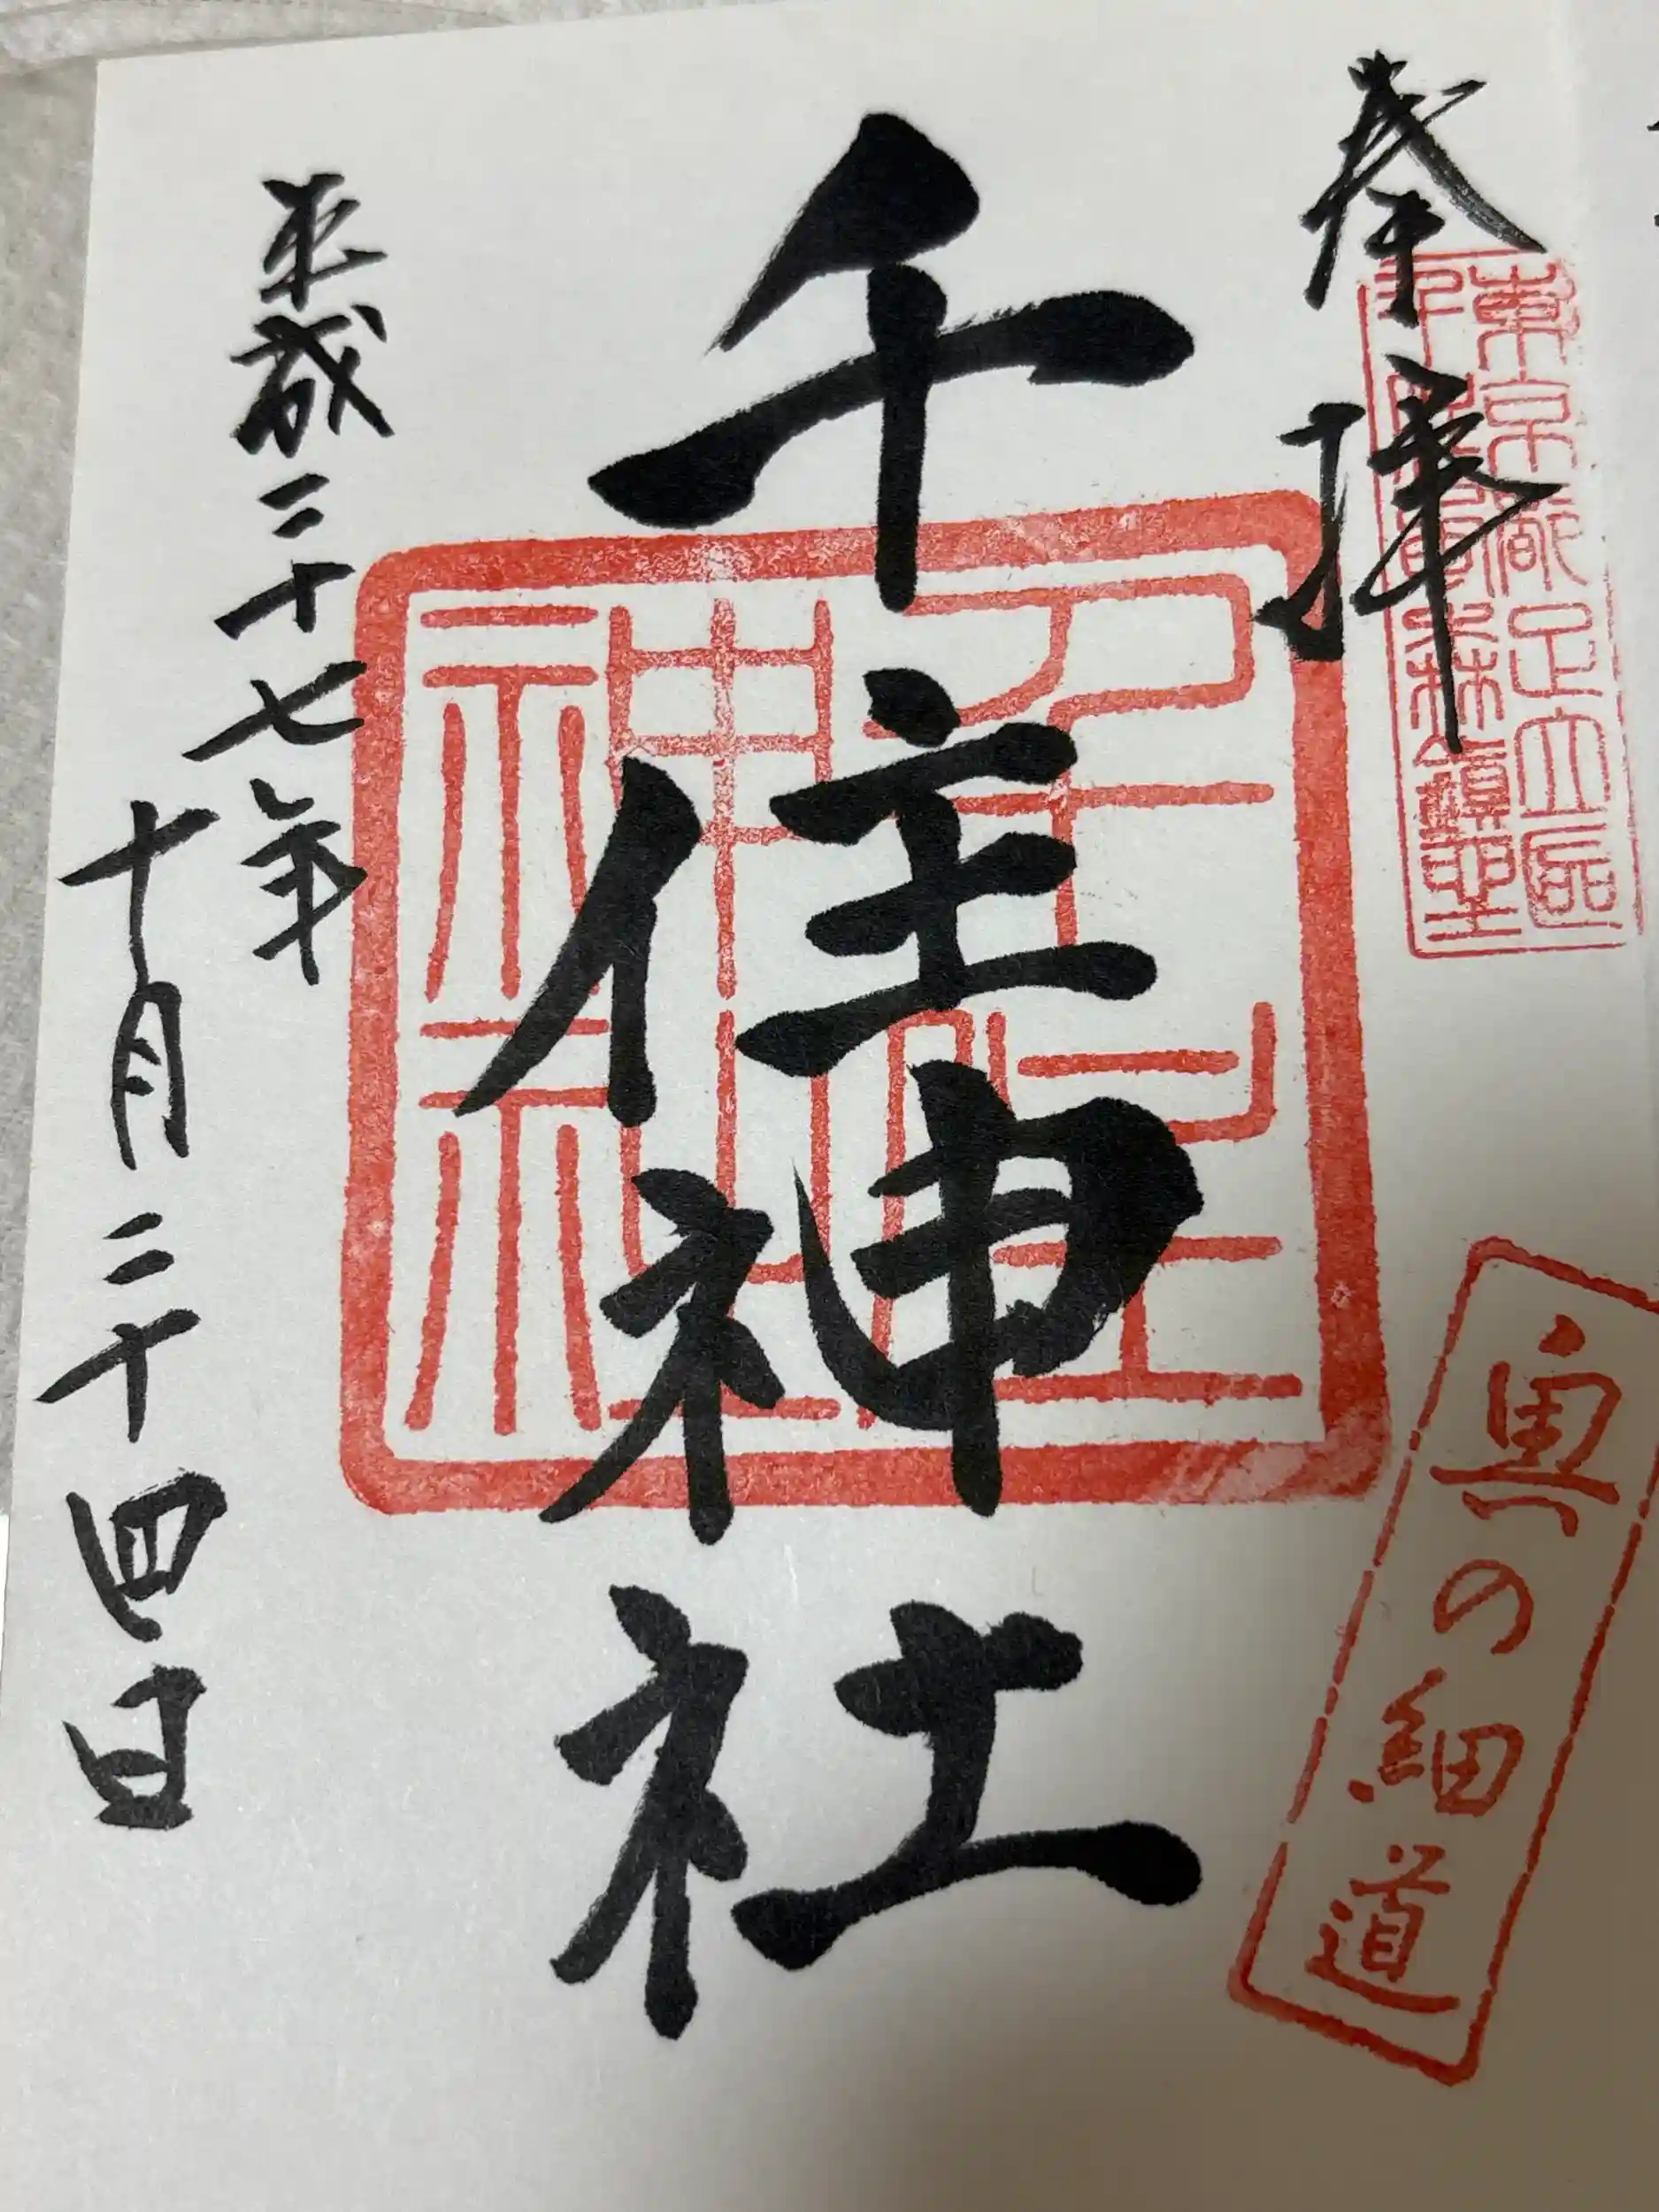 奉拝
東京都足立区
鎮座
奥の細道
千住神社
千住
神社
平成二十七年
十月二十四日